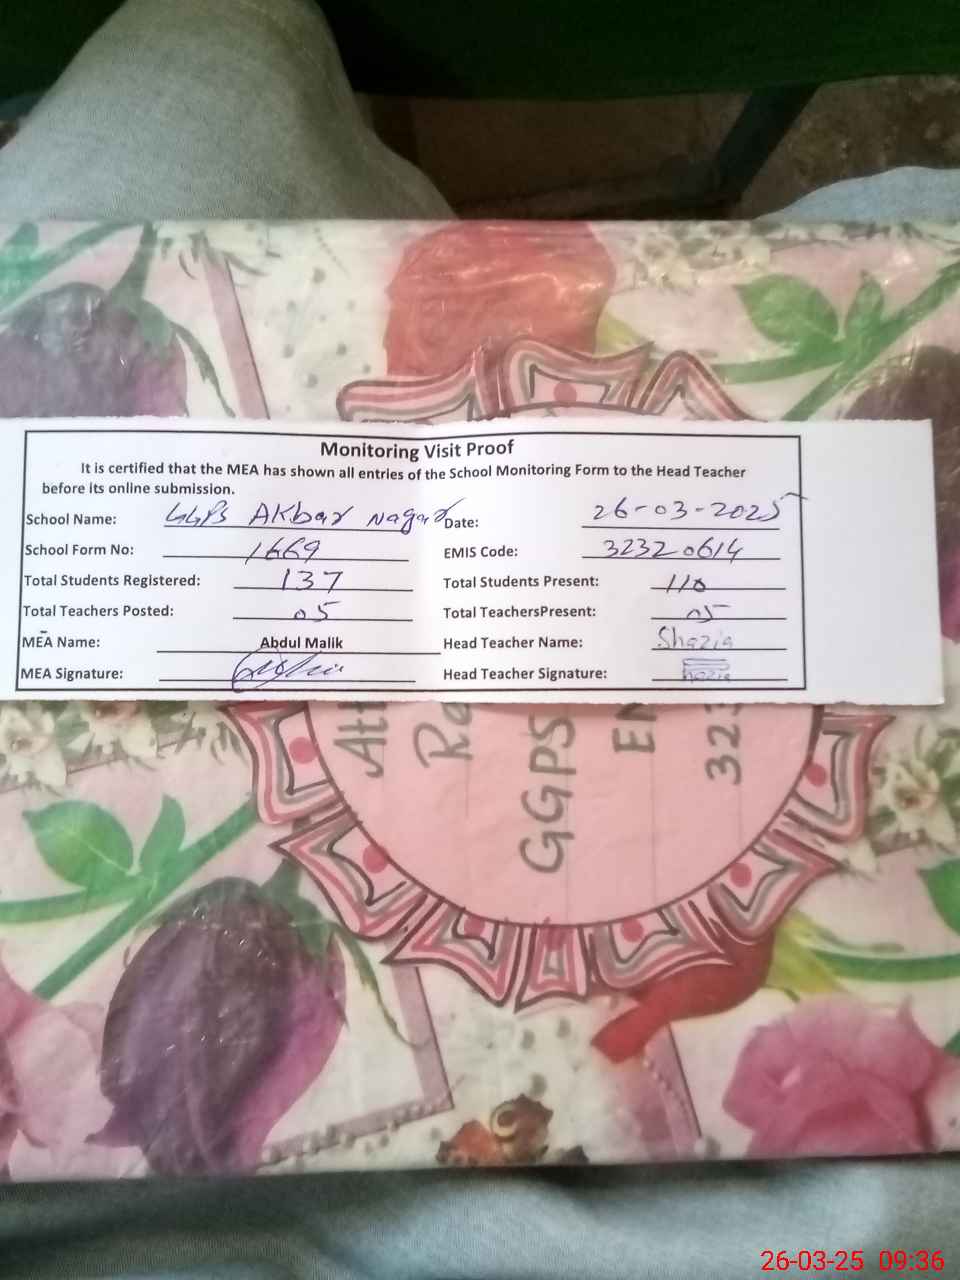 Monitoring Visit Proof
It is certified that the MEA has shown all entries of the School Monitoring Form to the Head Teacher
before its online submission.
School Name: GGPS Akbar Nagar Date: 26-03-2025
School Form No: 1669 EMIS Code: 32320614
Total Students Registered: 137 Total Students Present: 110
Total Teachers Posted: 05 Total TeachersPresent: 05
MEA Name: Abdul Malik Head Teacher Name: Shazia
MEA Signature: Head Teacher Signature: Shazia
Att
Re
GGPS
EM
323
26-03-25 09:36